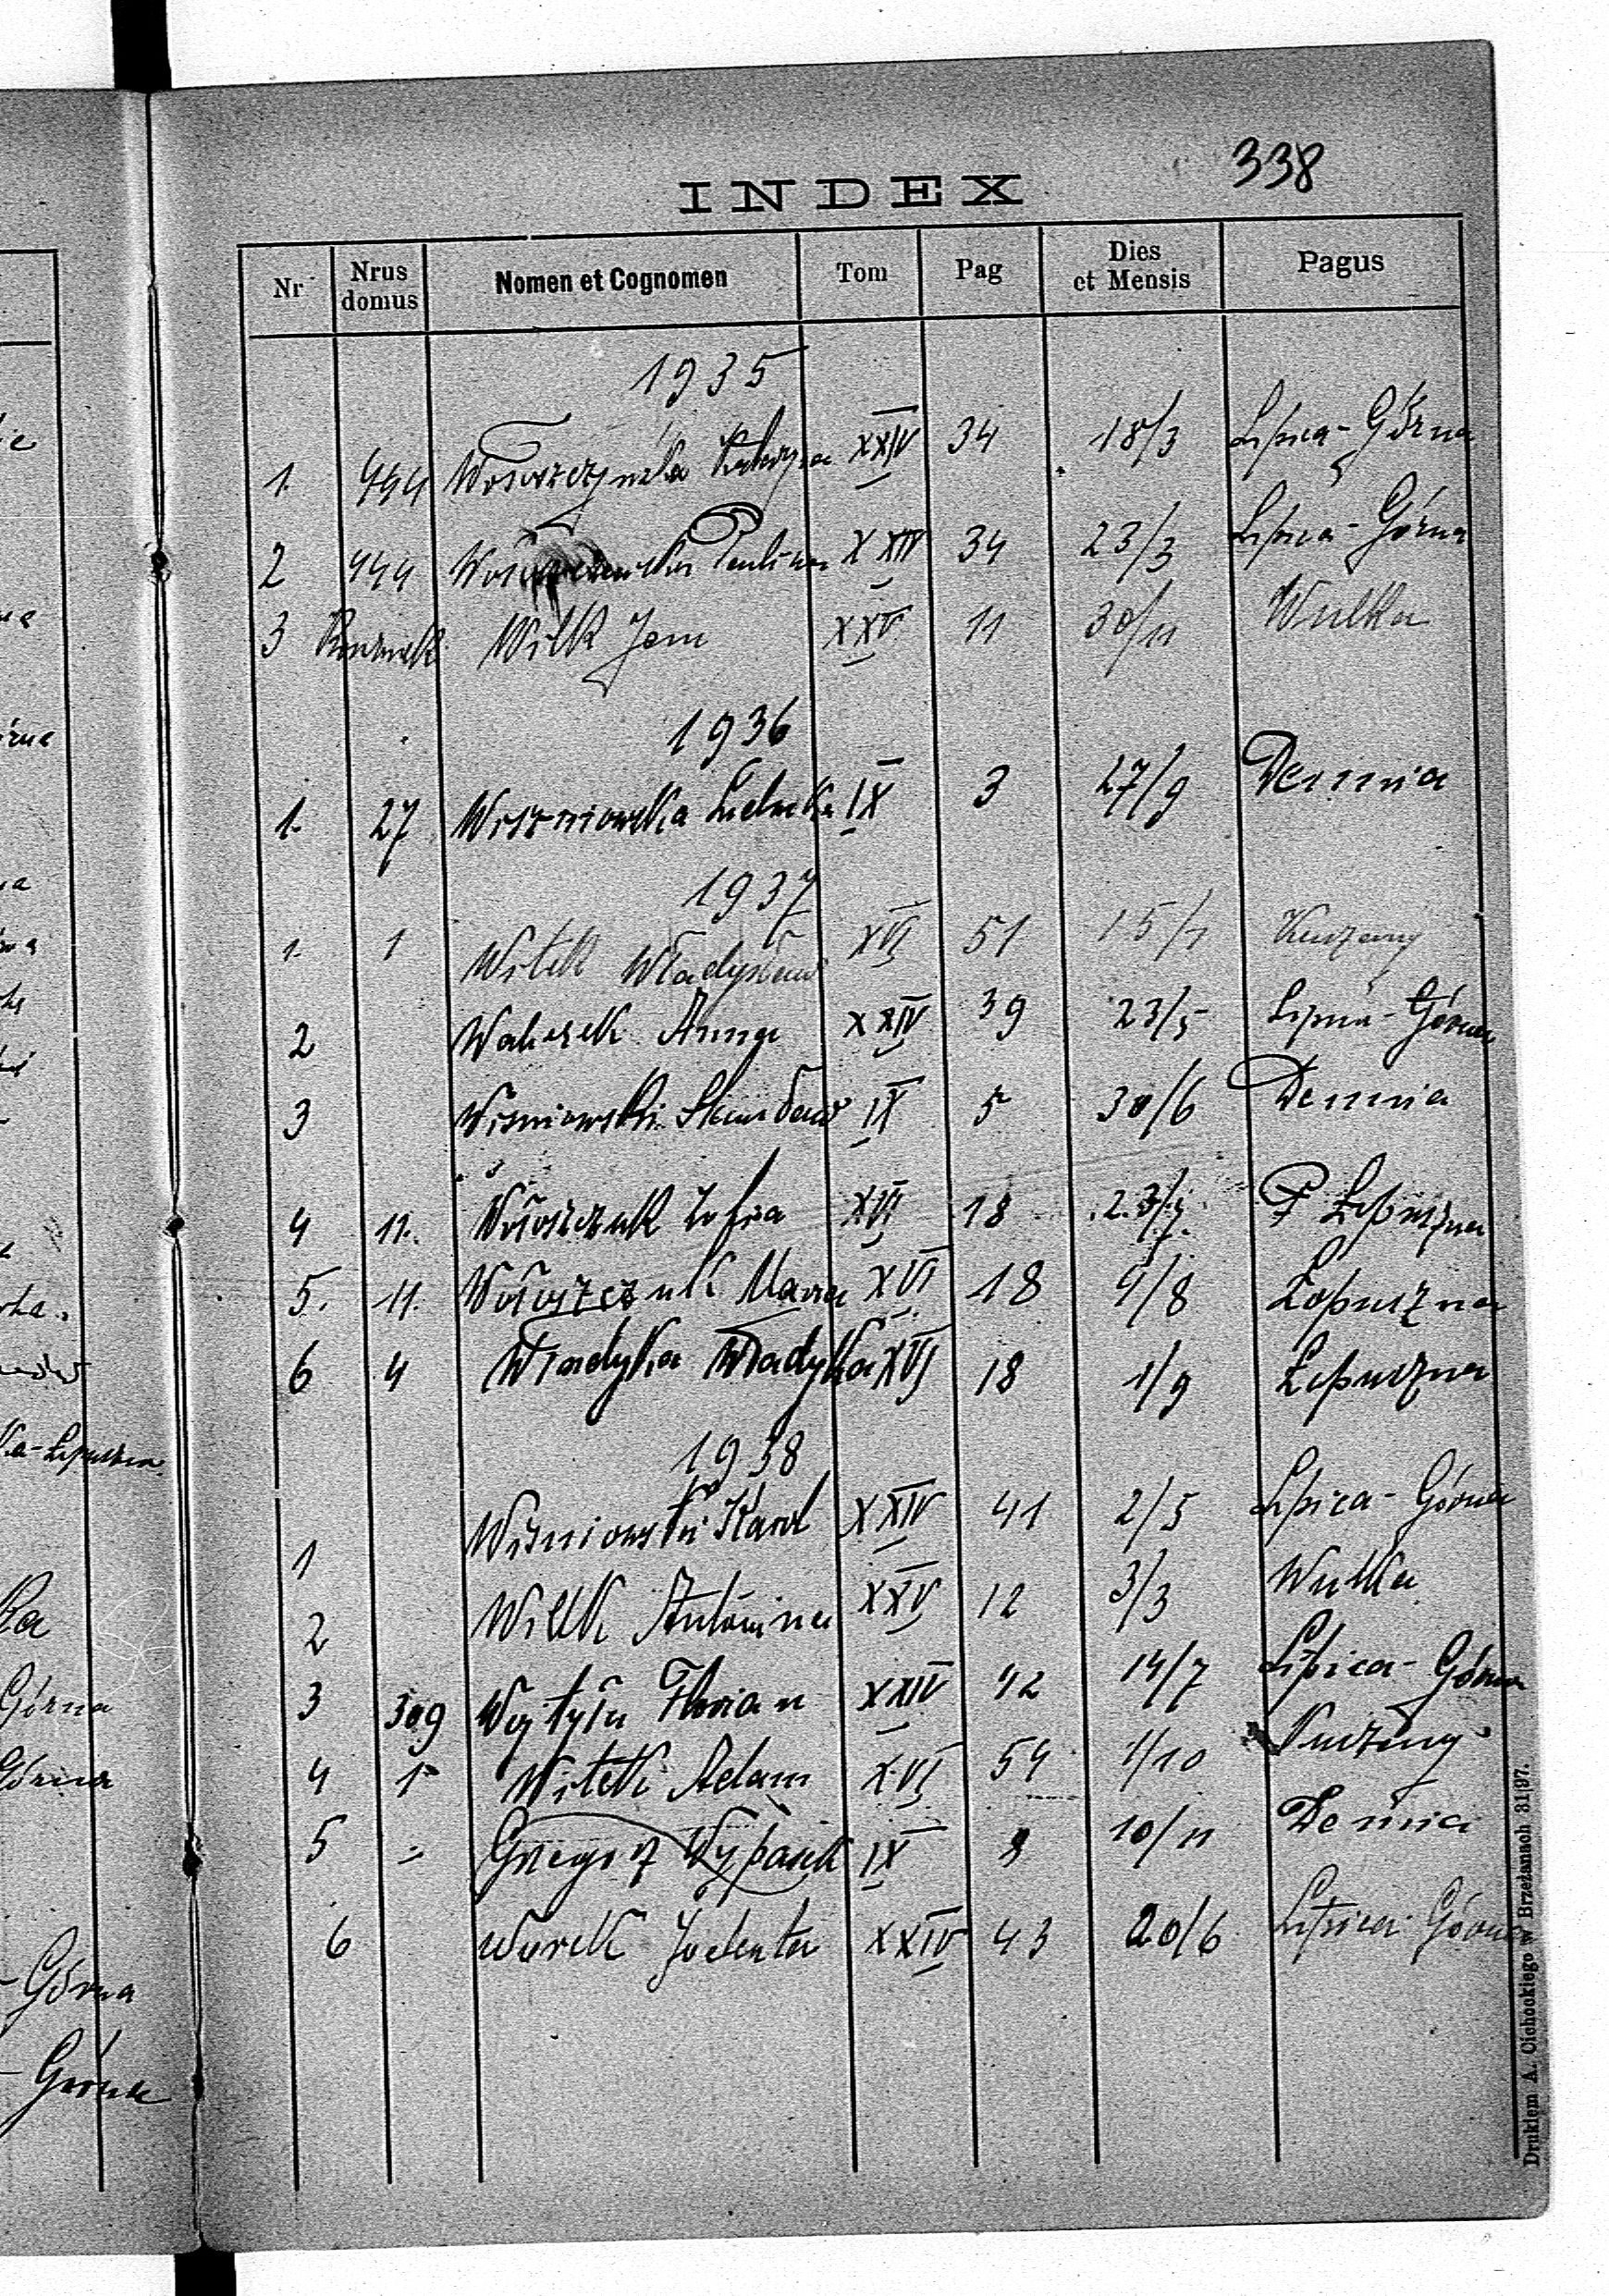 338
INDEX
Nr Nrus domus Nomen et Cognomen Tom Pag Dies et Mensis Pagus
1935
1. 444 Wołoszczyńska Katarzyna XXIV 34 18/3 Lipica-Górna
2 444 Paulina XXIV 34 23/3 Lipica-Górna
3 Wilk Jan XXV 11 30/11 Wulka
1936
1. 27 Wiszniowska Ludwika IX 3 27/9 Demnia
1937
1. 1 Witek Władysław XVI 51 15/1
2 Anna XXIV 39 23/5 Lipica-Górna
3 Wiśniowski Stanisław IX 5 30/6 Demnia
4 11. Wołoszczuk Zofia XVI 18 23/7. P Łopuszna
5. 11. Wołoszczuk Maria XVI 18 9/8 Łopuszna
6 4 Władyka XVI 18 1/9 Łopuszna
1938
1 Wiśniowski Karol XXIV 41 2/5 Lipica-Górna
2 Wilk Antonina XXV 12 3/3 Wulka
3 309 Florian XXIV 42 14/7 Lipica-Górna
4 1 Witek Adam XVI 54 1/10
5 Grzegorz Wypasek IX 10/11 Demnia
6 Wurek Jolenta XXIV 43 20/6 Lipica Górna
Drukiem A. Cichockiego w Brzeżanach 31|97.
ka-Łopuszna.
Górna
Górna
-Górna
-Górna